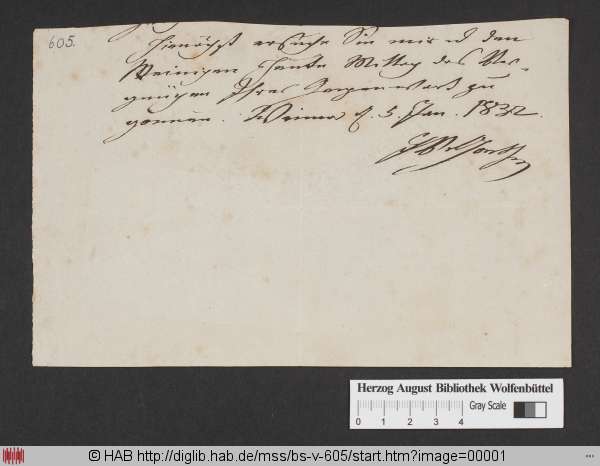 605.
Hiernächst ersuche Sie mir u den
Meinigen heute Mittag das Ver-
gnügen Ihrer Gegenwart zu
gönnen. Weimar d. 5. Jan. 1832.
JWvGoethe
Herzog August Bibliothek Wolfenbüttel
0 1 2 3 4 Gray Scale
© HAB http://diglib.hab.de/mss/bs-v-605/start.htm?image=00001